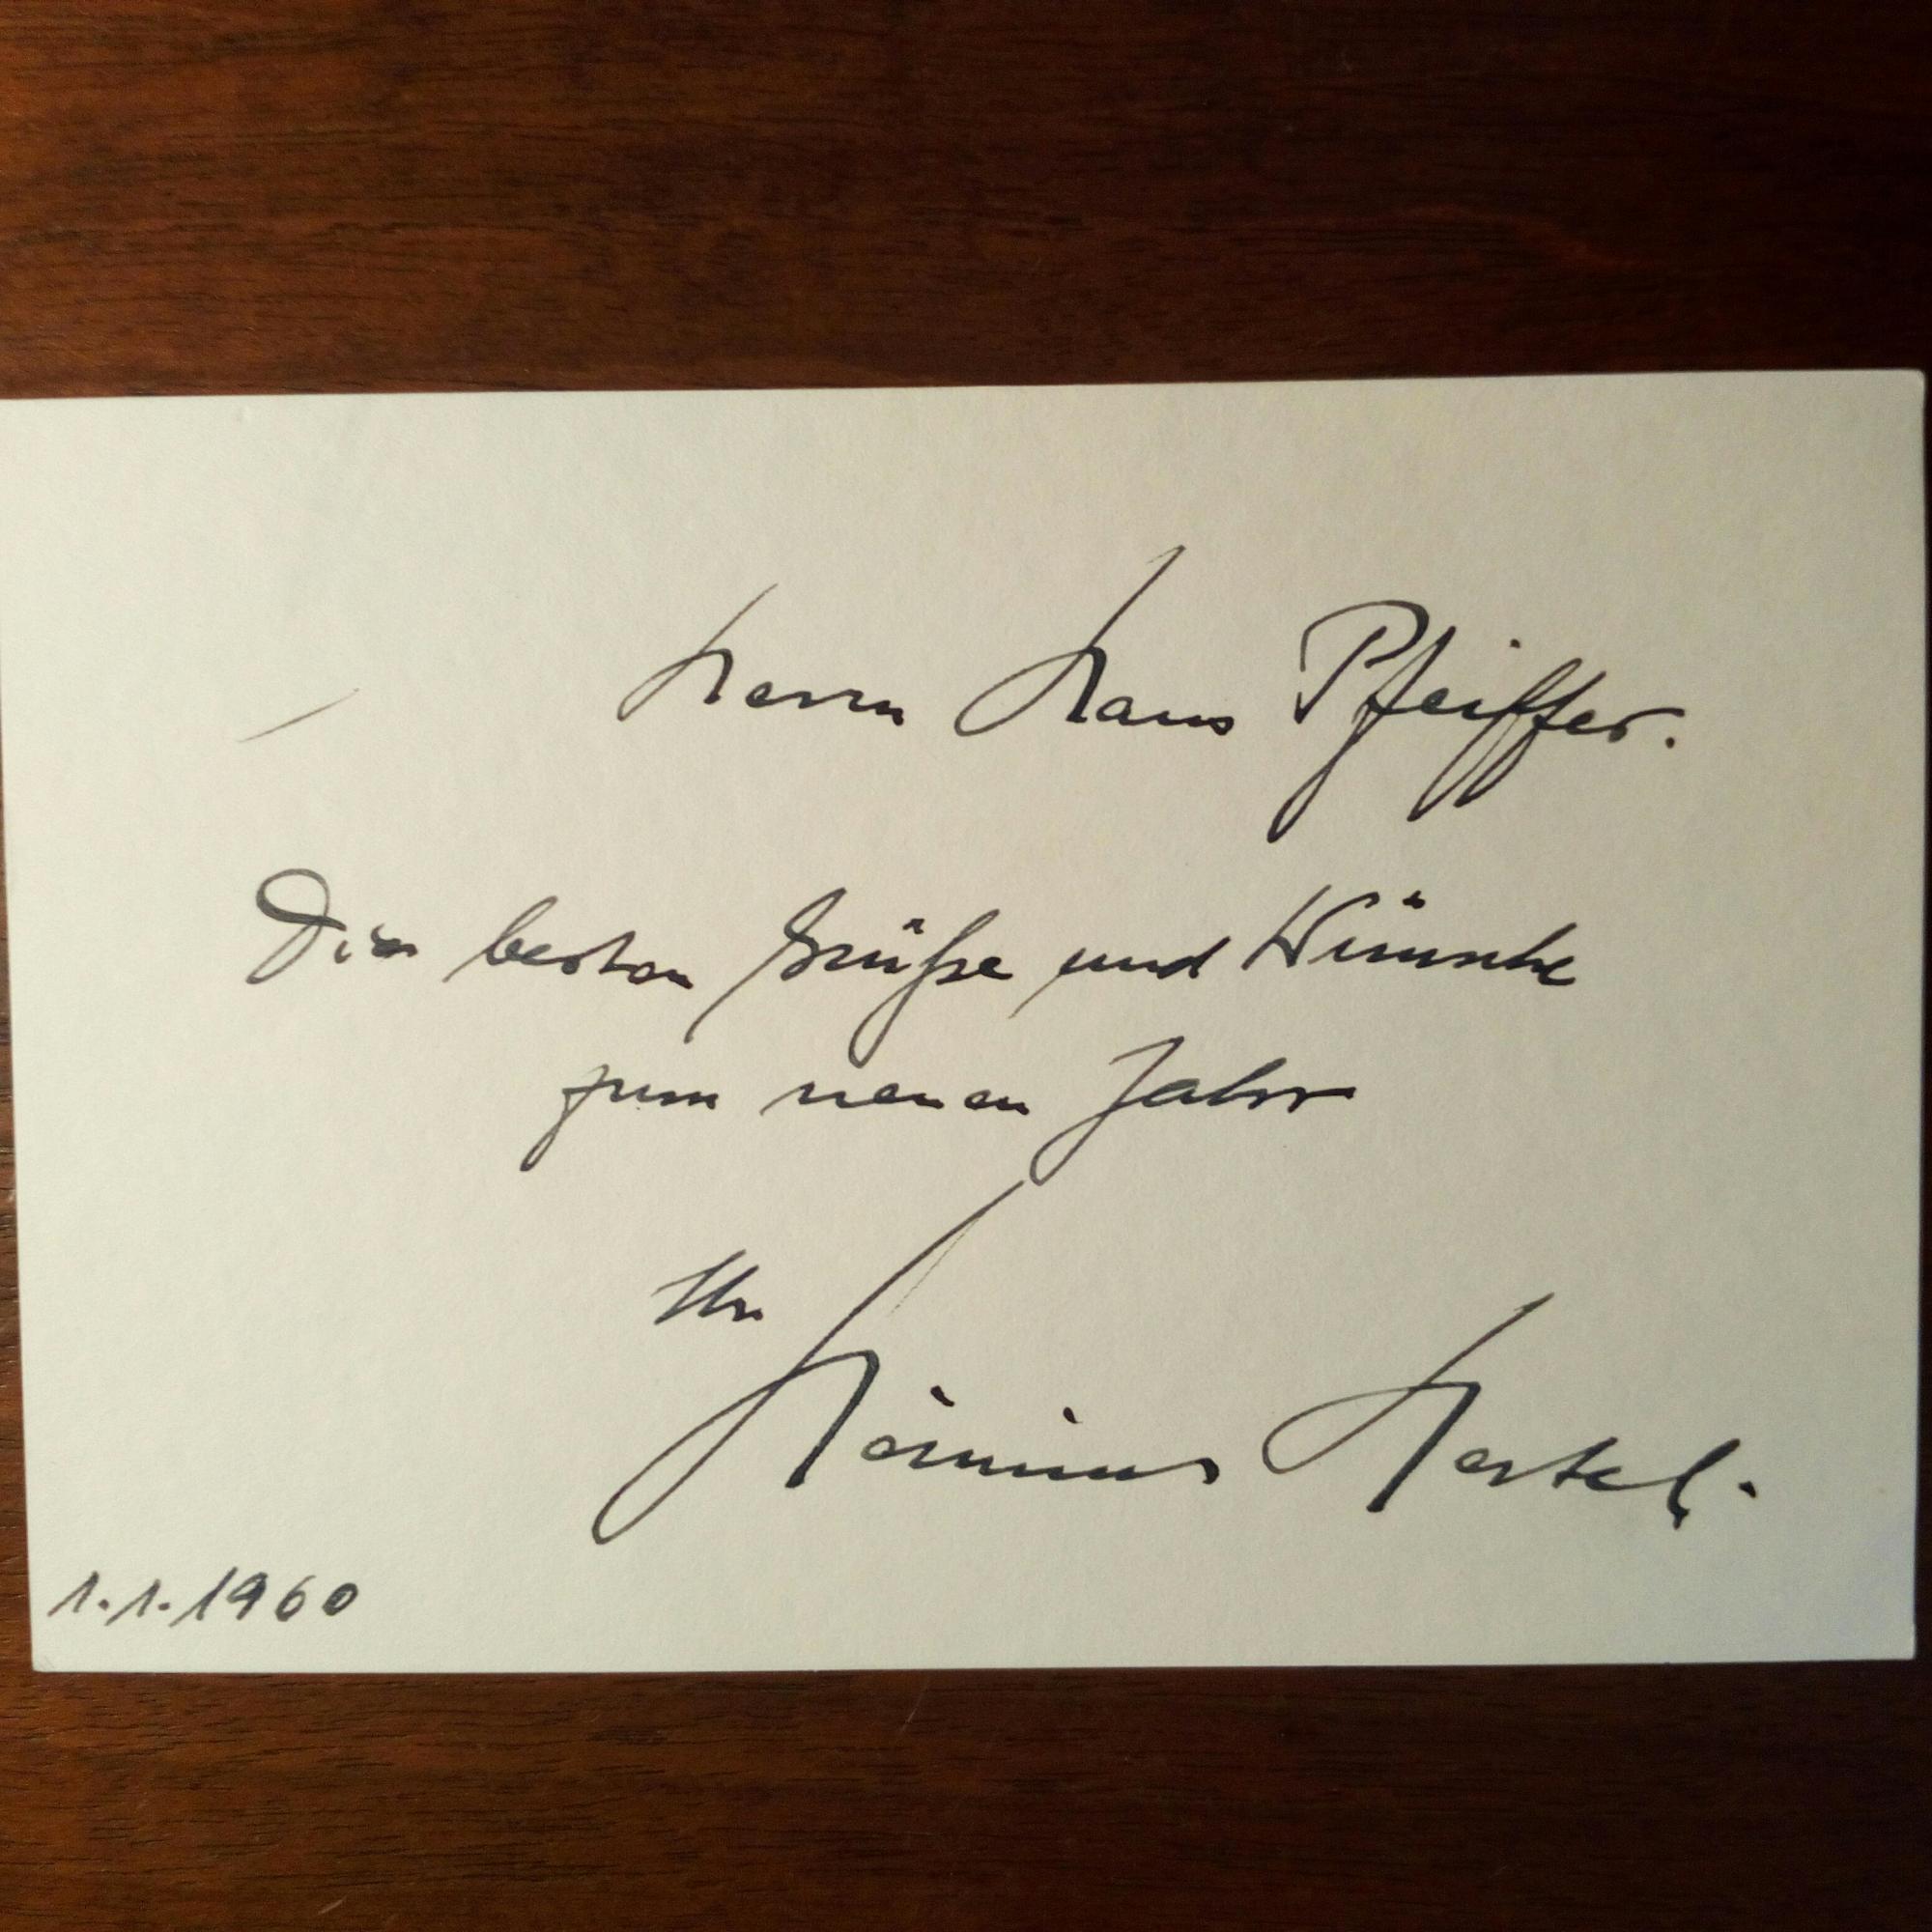 Herrn Hans Pfeiffer.
Die besten Grüße und Wünsche
zum neuen Jahr
Ihr
Hertel.
1.1.1960